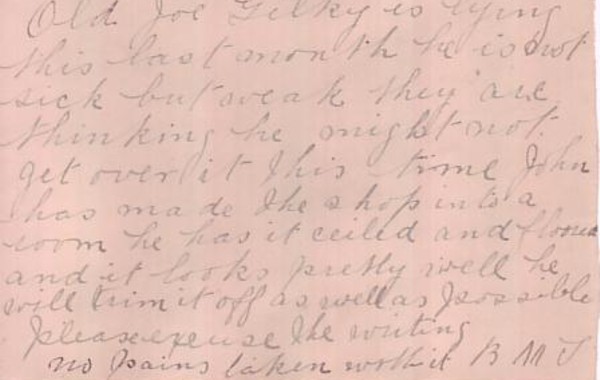 Old Joe Gilky is lying
this last month he is not
sick but weak they are
thinking he might not
get over it this time John
has made the shop into a
room he has it ceiled and floored
and it looks pretty well he
will trim it off as well as possible
please excuse the writing
no pains taken with it B M J